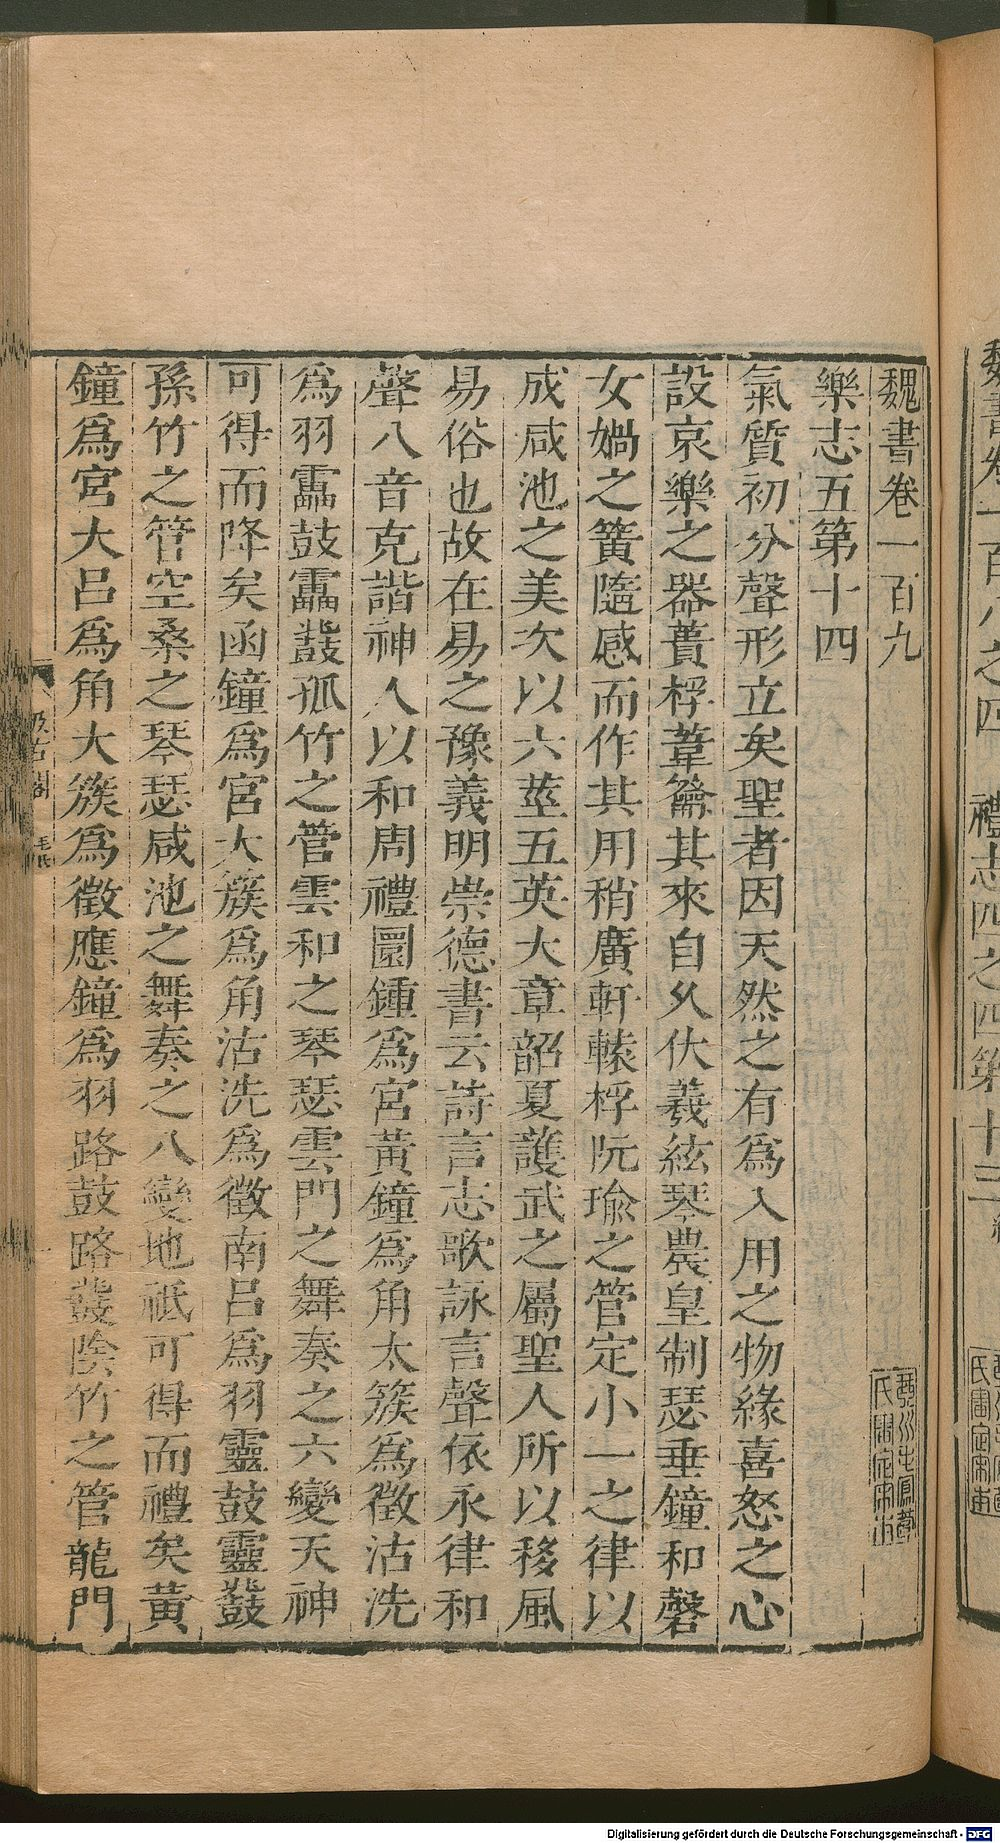 魏書卷一百九
樂志五第十四
氣質初分聲形立矣聖者因天然之有為入用之物緣喜怒之心
設哀樂之器蕢桴葦籥其來自久伏羲絃琴農皇制瑟垂鐘和磬
女媧之簧隨感而作其用稍廣軒轅桴阮瑜之管定小一之律以
成咸池之美次以六莖五英大章韶夏護武之屬聖人所以移風
易俗也故在易之豫義明崇德書云詩言志歌詠言聲依永律和
聲八音克諧神人以和周禮圜鍾為宮黃鐘為角太簇為徵沽洗
為羽靁鼓靁鼗孤竹之管雲和之琴瑟雲門之舞奏之六變天神
可得而降矣函鐘為宮大簇為角沽洗為徵南呂為羽靈鼓靈鼗
孫竹之管空桑之琴瑟咸池之舞奏之八變地祇可得而禮矣黃
鐘為宮大呂為角大簇為徵應鐘為羽路鼓路鼗陰竹之管龍門
汲古閣
毛氏
魏書卷一百八之四
禮志四之四第十三
Digitalisierung gefördert durch die Deutsche Forschungsgemeinschaft - DFG